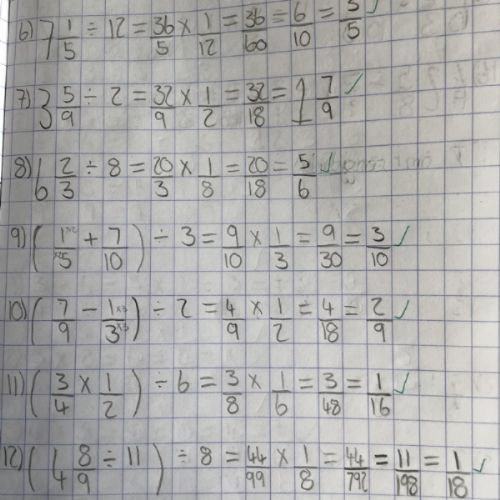 6) 7 1/5 ÷ 12 = 36/5 × 1/12 = 36/60 = 6/10 = 3/5 ✓
7) 3 5/9 ÷ 2 = 32/9 × 1/2 = 32/18 = 1 7/9 ✓
8) 6 2/3 ÷ 8 = 20/3 × 1/8 = 20/18 = 5/6 ✓
9) (1×2/5×2 + 7/10) ÷ 3 = 9/10 × 1/3 = 9/30 = 3/10 ✓
10) (7/9 - 1×3/3×3) ÷ 2 = 4/9 × 1/2 = 4/18 = 2/9 ✓
11) (3/4 × 1/2) ÷ 6 = 3/8 × 1/6 = 3/48 = 1/16 ✓
12) (4 8/9 ÷ 11) ÷ 8 = 44/99 × 1/8 = 44/792 = 11/198 = 1/18 ✓